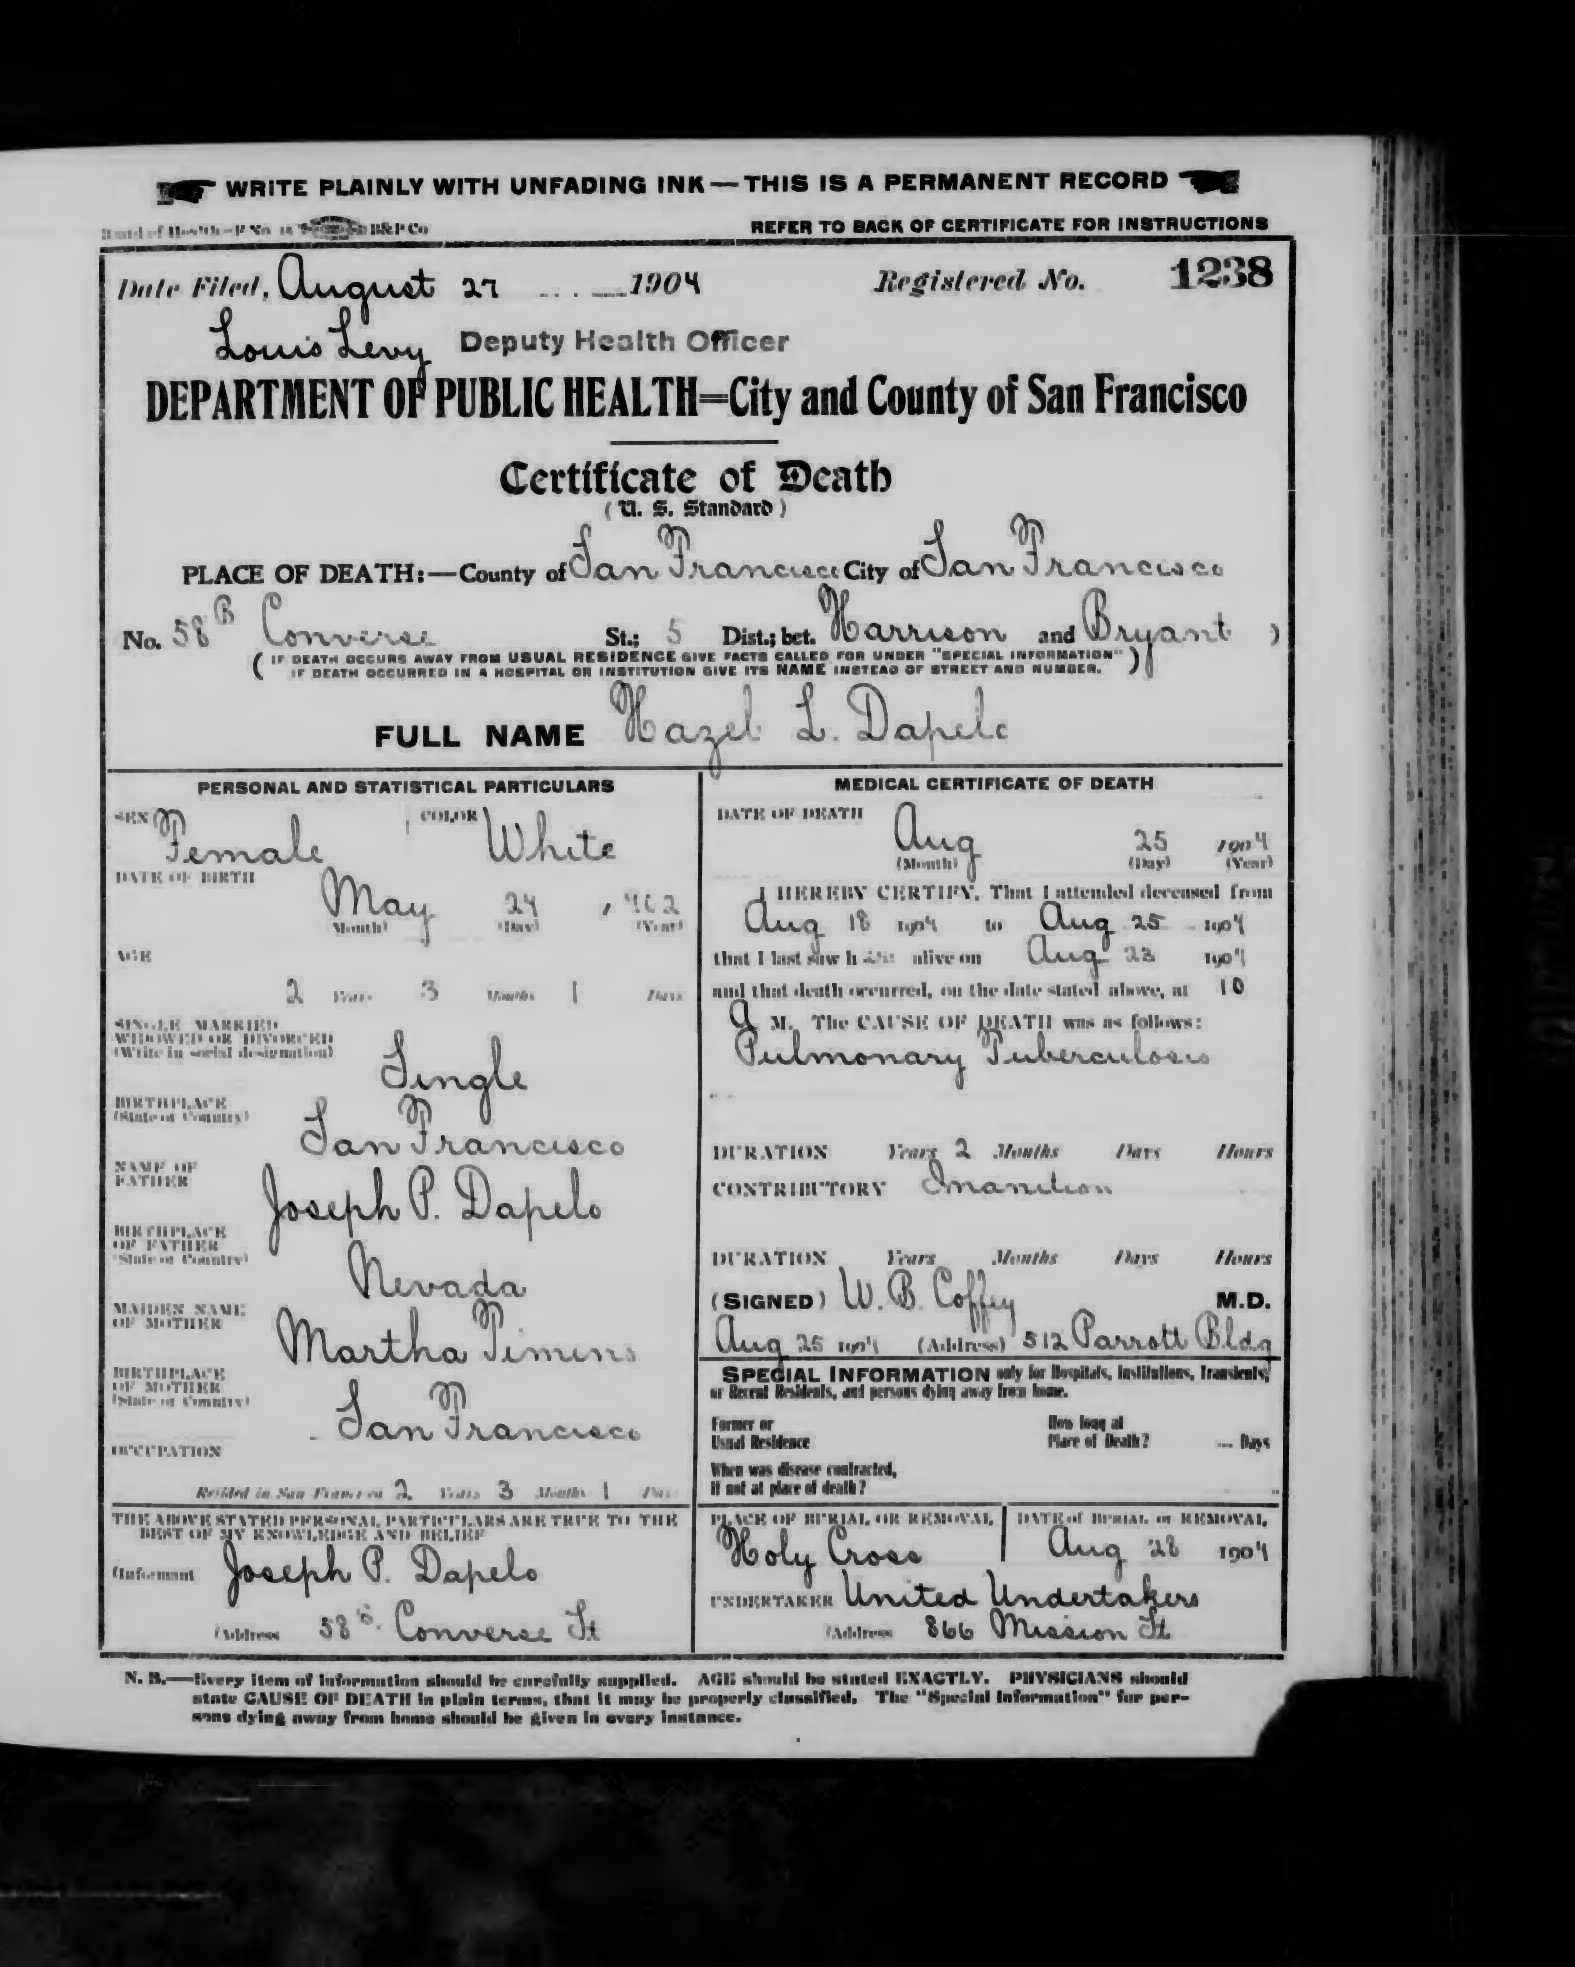 WRITE PLAINLY WITH UNFADING INK — THIS IS A PERMANENT RECORD
Board of Health—F No 14 B&P Co REFER TO BACK OF CERTIFICATE FOR INSTRUCTIONS
Date Filed, August 27 1904 Registered No. 1238
Louis Levy Deputy Health Officer
DEPARTMENT OF PUBLIC HEALTH=City and County of San Francisco
Certificate of Death
(U. S. Standard)
PLACE OF DEATH:—County of San Francisco City of San Francisco
No. 58 B Converse St.; 5 Dist.; bet. Harrison and Bryant )
( IF DEATH OCCURS AWAY FROM USUAL RESIDENCE GIVE FACTS CALLED FOR UNDER "SPECIAL INFORMATION" )
IF DEATH OCCURRED IN A HOSPITAL OR INSTITUTION GIVE ITS NAME INSTEAD OF STREET AND NUMBER.
FULL NAME Hazel L. Dapelo
PERSONAL AND STATISTICAL PARTICULARS
SEX Female COLOR White
DATE OF BIRTH
May 24 , 902
(Month) (Day) (Year)
AGE
2 Years 3 Months 1 Days
SINGLE MARRIED
WIDOWED OR DIVORCED
(Write in social designation) Single
BIRTHPLACE
(State or Country) San Francisco
NAME OF
FATHER Joseph P. Dapelo
BIRTHPLACE
OF FATHER
(State or Country) Nevada
MAIDEN NAME
OF MOTHER Martha
BIRTHPLACE
OF MOTHER
(State or Country) San Francisco
OCCUPATION
Resided in San Francisco 2 Years 3 Months 1 Days
THE ABOVE STATED PERSONAL PARTICULARS ARE TRUE TO THE
BEST OF MY KNOWLEDGE AND BELIEF
(Informant Joseph P. Dapelo
(Address 58 B. Converse St
MEDICAL CERTIFICATE OF DEATH
DATE OF DEATH
Aug 25 1904
(Month) (Day) (Year)
I HEREBY CERTIFY, That I attended deceased from
Aug 18 1904 to Aug 25 1904
that I last saw h er alive on Aug 23 1904
and that death occurred, on the date stated above, at 10
a M. The CAUSE OF DEATH was as follows:
Pulmonary Tuberculosis
DURATION Years 2 Months Days Hours
CONTRIBUTORY Inanition
DURATION Years Months Days Hours
(SIGNED) W. B. Coffey M.D.
Aug 25 1904 (Address) 512 Parrott Bldg
SPECIAL INFORMATION only for Hospitals, Institutions, Transients,
or Recent Residents, and persons dying away from home.
Former or How long at
Usual Residence Place of Death? .... Days
When was disease contracted,
If not at place of death?
PLACE OF BURIAL OR REMOVAL DATE of BURIAL or REMOVAL
Holy Cross Aug 28 1904
UNDERTAKER United Undertakers
(Address 866 Mission St
N. B.—Every item of information should be carefully supplied. AGE should be stated EXACTLY. PHYSICIANS should
state CAUSE OF DEATH in plain terms, that it may be properly classified. The "Special Information" for per-
sons dying away from home should be given in every instance.